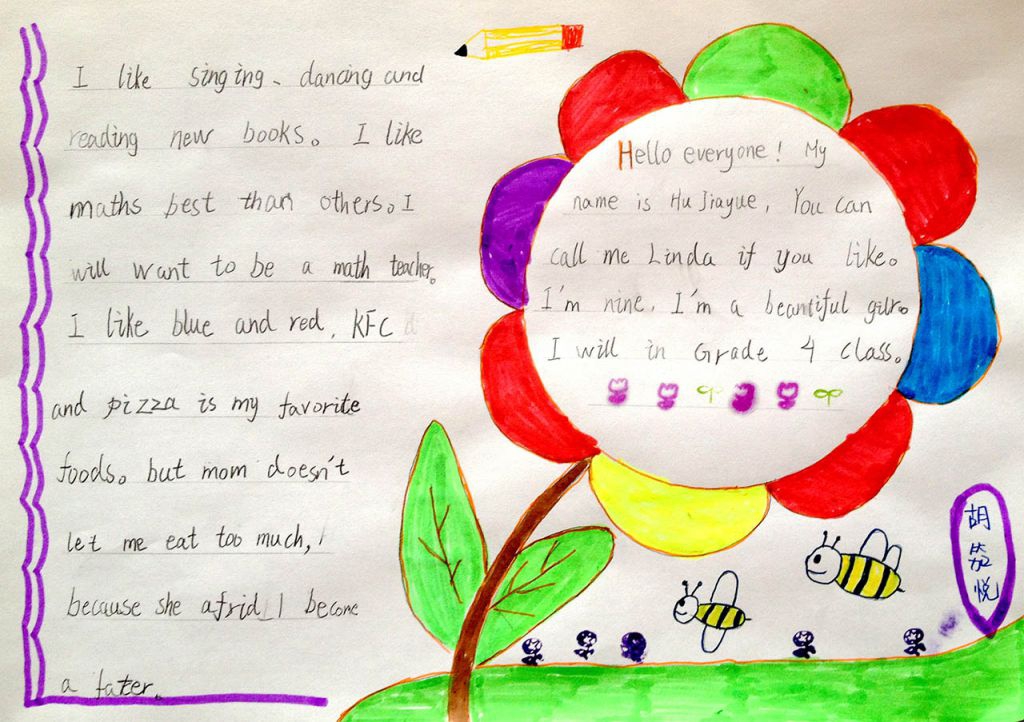 I like singing、dancing and
reading new books。 I like
maths best than others。I
will want to be a math teacher。
I like blue and red, KFC
and pizza is my favorite
foods。but mom doesn't
let me eat too much,
because she afrid I become
a fater.
Hello everyone! My
name is Hu Jiayue, You can
call me Linda if you like。
I'm nine, I'm a beautiful gilr。
I will in Grade 4 Class。
胡
笳
悦